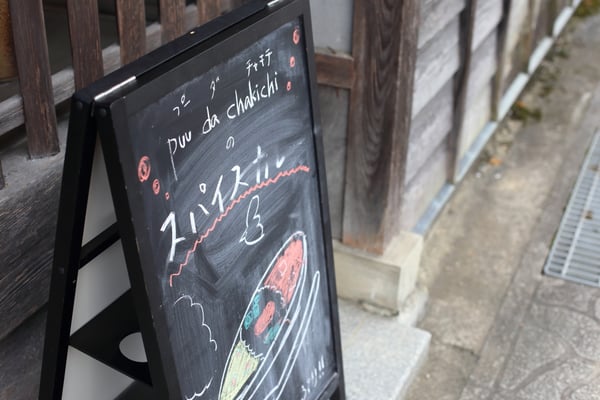 プーダ チャキチ
puu da chakichi
の
スパイスカレー